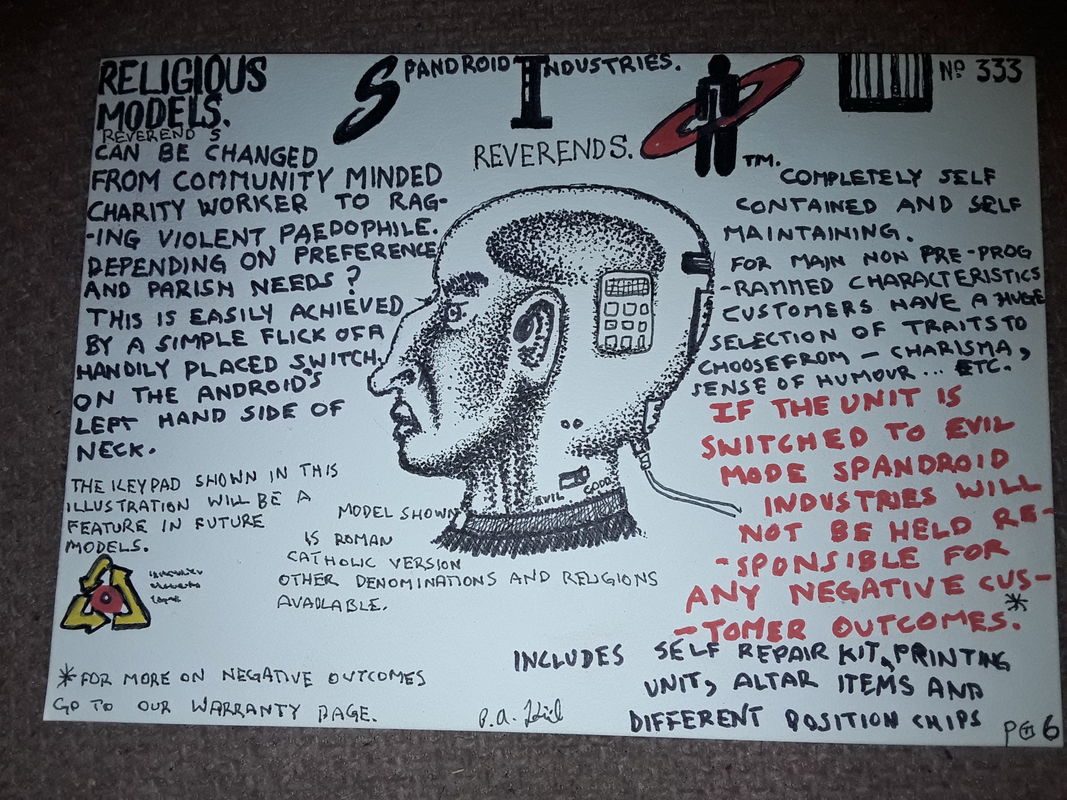 RELIGIOUS
MODELS.
REVEREND S
CAN BE CHANGED
FROM COMMUNITY MINDED
CHARITY WORKER TO RAG-
-ING VIOLENT PAEDOPHILE.
DEPENDING ON PREFERENCE
AND PARISH NEEDS?
THIS IS EASILY ACHIEVED
BY A SIMPLE FLICK OF A
HANDILY PLACED SWITCH,
ON THE ANDROID'S
LEFT HAND SIDE OF
NECK.
THE KEYPAD SHOWN IN THIS
ILLUSTRATION WILL BE A
FEATURE IN FUTURE
MODELS.
SPANDROID INDUSTRIES.
REVERENDS.
TM.
Nº 333
COMPLETELY SELF
CONTAINED AND SELF
MAINTAINING.
FOR MAIN NON PRE-PROG
-RAMMED CHARACTERISTICS
CUSTOMERS HAVE A HUGE
SELECTION OF TRAITS TO
CHOOSE FROM - CHARISMA,
SENSE OF HUMOUR... ETC.
IF THE UNIT IS
SWITCHED TO EVIL
MODE SPANDROID
INDUSTRIES WILL
NOT BE HELD RE-
-SPONSIBLE FOR
ANY NEGATIVE CUS-
-TOMER OUTCOMES.*
EVIL GOOD
MODEL SHOWN
IS ROMAN
CATHOLIC VERSION
OTHER DENOMINATIONS AND RELIGIONS
AVAILABLE.
INCLUDES SELF REPAIR KIT, PRINTING
UNIT, ALTAR ITEMS AND
DIFFERENT POSITION CHIPS
*FOR MORE ON NEGATIVE OUTCOMES
GO TO OUR WARRANTY PAGE.
P.A.
PG 6